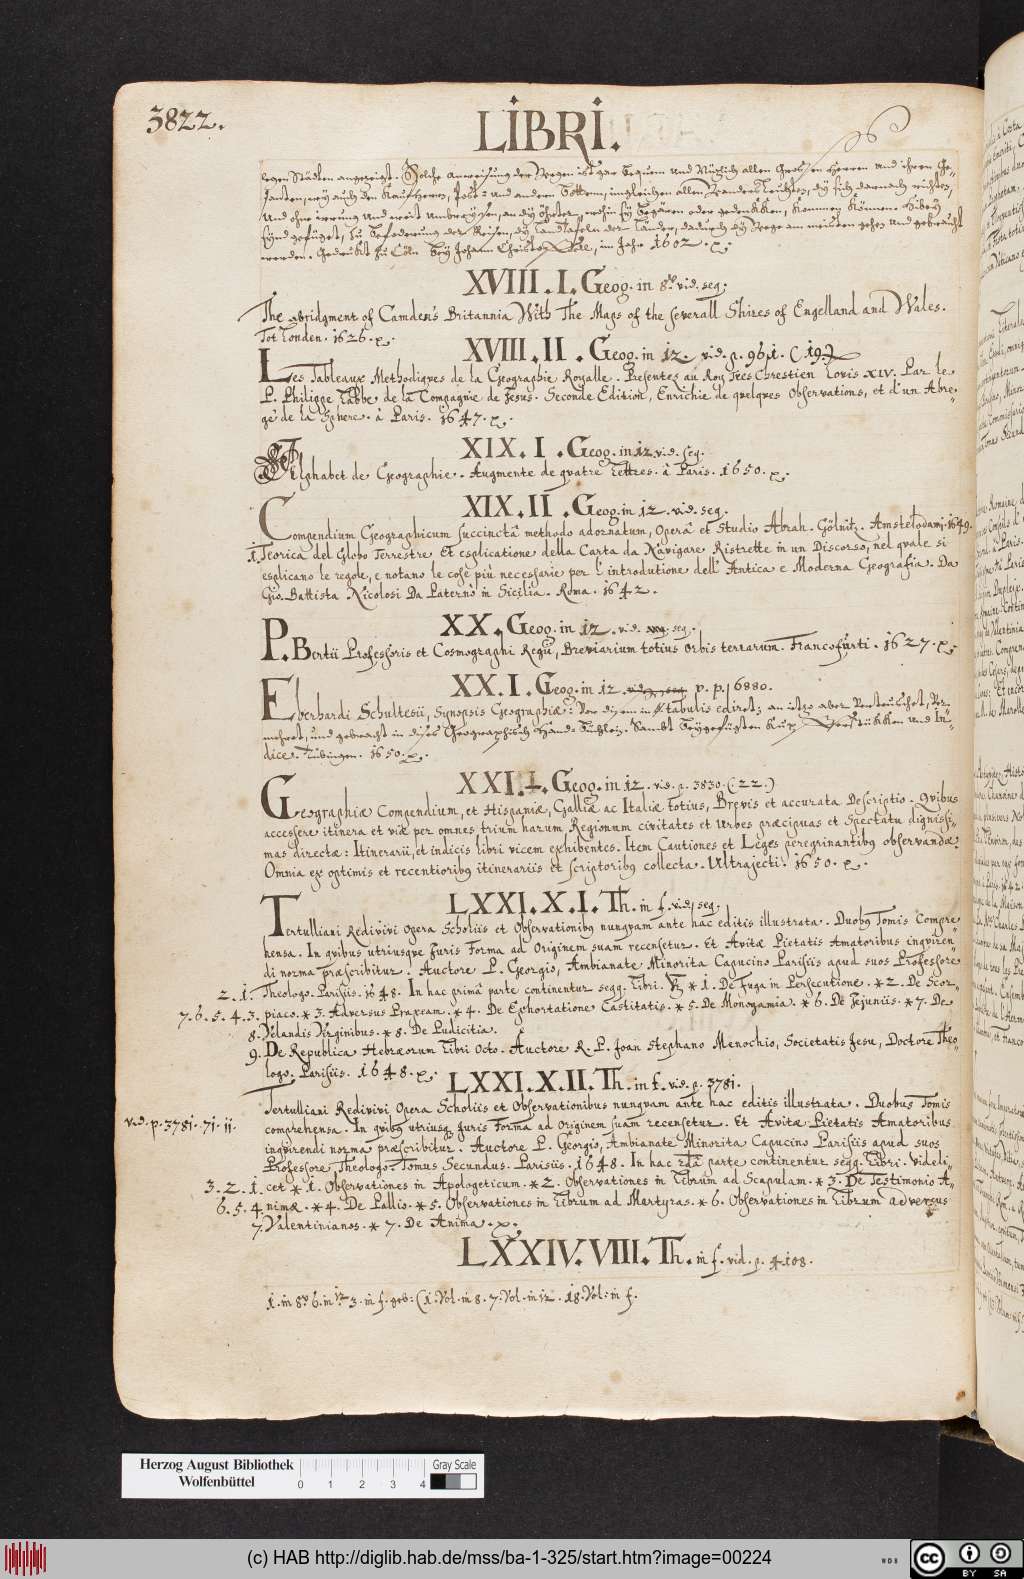 3822.
LIBRI.
legen Städten angezeigt. Solche anweisung der Wegen ist gar bequem und Nützlich allen Großen Herren und ihren Ge-
santen, wy auch den Kauffherren, Post- und andern Botten, imgleichen allen Wandersleuhten, dy sich darnach richten,
Und ohne irrung und weit umbreysen, an dy öhrter, wohin sy begären oder gedenkken, kommen können. Hibey
synd gefüget, zu beforderung der Reisen, dy Landtafeln der Länder, dadurch dy Wege am meisten gehen und gebraucht
werden. Gedrukt zu Cöln bey Johann Christoffel, im Jahr 1602.
XVIII. I. Geog. in 8vo vid. seq.
The abridgment of Camden's Britannia With The Maps of the severall Shires of Engelland and Wales.
Tot Londen. 1626.
XVIII. II. Geog. in 12. vid. p. (19.)
Les Tableaux Methodiques de la Geographie Royalle. Presentes au Roy Tres Chrestien Lovis XIV. Par le
P. Philippe Labbe de la Compagnie de Jesus. Seconde Edition, Enrichie de quelques Observations, et d'un Abre-
gé de la Sphere. à Paris. 1647.
XIX. I. Geog. in 12. vid. seq.
Alphabet de Geographie. Augmente de qvatre Lettres. à Paris. 1650.
XIX. II. Geog. in 12. vid. seq.
Compendium Geographicum succinctâ methodo adornatum, Operâ et Studio Abrah. Gölnitz. Amstelodami. 1649.
1. Teorica del Globo Terrestre Et esplicatione della Carta da Navigare Ristrette in un Discorso, nel qvale si
esplicano le regole, e notano le cose più necessarie per l'introdutione dell' Antica e Moderna Geografia. Da
Gio. Battista Nicolosi Da Paternò in Sicilia. Roma. 1642.
XX. Geog. in 12. vid. seq.
P. Bertii Professoris et Cosmographi Regii, Breviarium totius Orbis terrarum. Francofurti. 1627.
XX. I. Geog. in 12 v. p. 6880.
Eberhardi Schultesii, Synopsis Geographiæ: Von disem in tabulis ediret; an itzo aber Verteutschet, Ver-
mehret, und gebracht in dises Geographisch Hand-Büchlein. Sambt beygefügten Kupferstükken und In-
dice. Tübingen. 1650.
XXI. Geog. in 12. vid. p. 3830. (22.)
Geographiæ Compendium, et Hispaniæ, Galliæ ac Italiæ totius, Brevis et accurata Descriptio. Qvibus
accessere itinera et viæ per omnes trium harum Regionum civitates et Urbes præcipuas et Spectatu dignissi-
mas directæ: Itinerarii, et indicis libri vicem exhibentes. Item Cautiones et Leges peregrinantibus observandæ.
Omnia ex optimis et recentioribus itinerariis et scriptoribus collecta. Ultrajecti. 1650.
LXXI. X. I. Th. in f. vid. seq.
Tertulliani Redivivi Opera Scholiis et Observationibus nunqvam ante hac editis illustrata. Duobus Tomis Compre-
hensa. In qvibus utriusqve Juris Forma ad Originem suam recensetur. Et Avitæ Pietatis Amatoribus inqviren-
di norma præscribitur. Auctore P. Georgio, Ambianate Minorita Capucino Parisiis apud suos Professore
2. 1. Theologo. Parisiis. 1648. In hac primâ parte continentur seqq. Libri. Vz * 1. De fuga in Persecutione. * 2. De Scor-
7. 6. 5. 4. 3. piaco. * 3. Adversus Praxeam. * 4. De Exhortatione Castitatis. * 5. De Monogamia. * 6. De Jejuniis. * 7. De
8. Velandis Virginibus. * 8. De Pudicitia.
9. De Republica Hebræorum Libri Octo. Auctore R. P. Joan Stephano Menochio, Societatis Jesu, Doctore Theo-
logo. Parisiis. 1648.
LXXI. X. II. Th. in f. vid. p. 3781.
Tertulliani Redivivi Opera Scholiis et Observationibus nunqvam ante hac editis illustrata. Duobus Tomis
vid. p. 3781. 71. 11.
comprehensa. In qvibus utriusq Juris Forma ad Originem suam recensetur. Et Avitæ Pietatis Amatoribus
inqvirendi norma præscribitur. Auctore P. Georgio, Ambianate Minorita Capucino Parisiis apud suos
Professore Theologo. Tomus Secundus. Parisiis. 1648. In hac 2dâ parte continentur seqq. Libri. Videli-
3. 2. 1. cet * 1. Observationes in Apologeticum. * 2. Observationes in Librum ad Scapulam. * 3. De Testimonio A-
6. 5. 4. nimæ. * 4. De Pallio. * 5. Observationes in Librum ad Martyras. * 6. Observationes in Librum adversus
7. Valentinianos. * 7. De Anima.
LXXIV. VIII. Th. in f. vid. p. 4108.
1. in 8vo 6. in 12. 3. in f. geb: (1. Vol. in 8. 7. Vol. in 12. 18. Vol: in f.
Herzog August Bibliothek
Wolfenbüttel
0 1 2 3 4
Gray Scale
(c) HAB http://diglib.hab.de/mss/ba-1-325/start.htm?image=00224
WDB
cc
BY SA